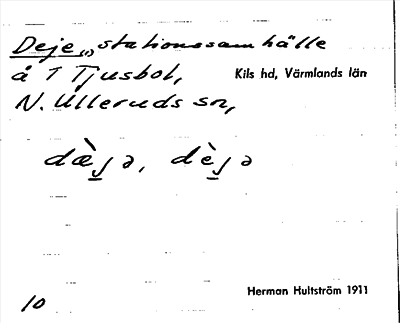 Deje„ stationssamhälle
å 1 Tjusbol, Kils hd, Värmlands län
N. Ulleruds sn,
dæ̀ȷə, dèȷə
Herman Hultström 1911
10